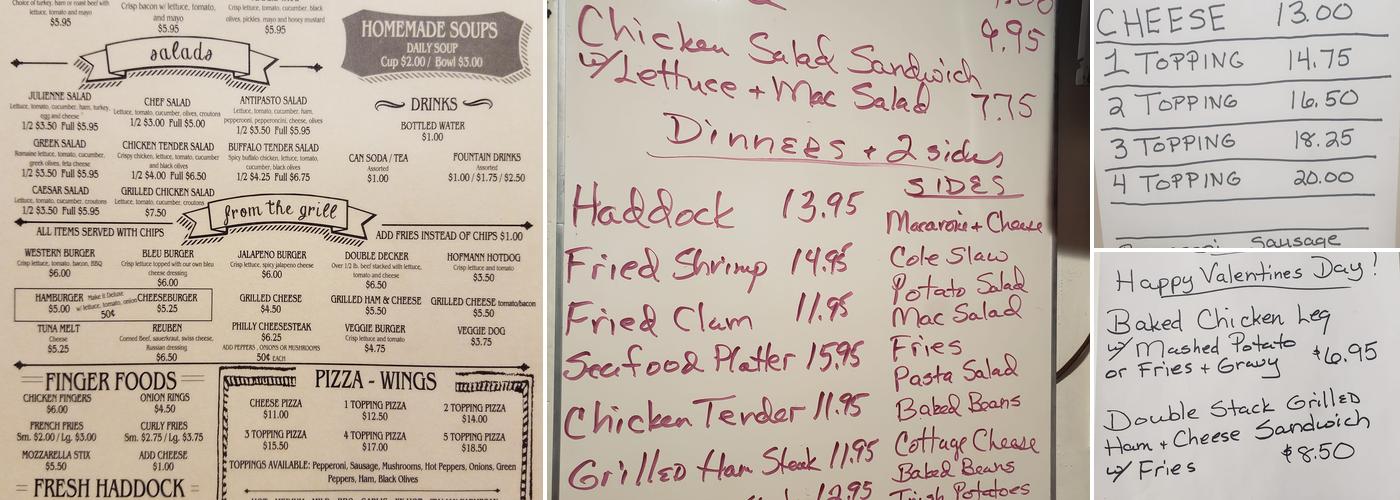 Choice of turkey, ham or roast beef with
lettuce, tomato and mayo
$5.95
Crisp bacon w/ lettuce, tomato,
and mayo
$5.95
Crisp lettuce, tomato, cucumber, black
olives, pickles, mayo and honey mustard
$5.95
HOMEMADE SOUPS
DAILY SOUP
Cup $2.00 / Bowl $3.00
salads
JULIENNE SALAD
Lettuce, tomato, cucumber, ham, turkey,
egg and cheese
1/2 $3.50 Full $5.95
CHEF SALAD
Lettuce, tomato, cucumber, olives, croutons
1/2 $3.00 Full $5.00
ANTIPASTO SALAD
Lettuce, tomato, cucumber, ham,
pepperoni, pepperoncini, cheese, olives
1/2 $3.50 Full $5.95
GREEK SALAD
Romaine lettuce, tomato, cucumber,
greek olives, feta cheese
1/2 $3.50 Full $5.95
CHICKEN TENDER SALAD
Crispy chicken, lettuce, tomato, cucumber
and black olives
1/2 $4.00 Full $6.50
BUFFALO TENDER SALAD
Spicy buffalo chicken, lettuce, tomato,
cucumber, black olives
1/2 $4.25 Full $6.75
CAESAR SALAD
Lettuce, tomato, cucumber, croutons
1/2 $3.50 Full $5.95
GRILLED CHICKEN SALAD
Lettuce, tomato, cucumber, croutons
$7.50
DRINKS
BOTTLED WATER
$1.00
CAN SODA / TEA
Assorted
$1.00
FOUNTAIN DRINKS
Assorted
$1.00 / $1.75 / $2.50
from the grill
ALL ITEMS SERVED WITH CHIPS
ADD FRIES INSTEAD OF CHIPS $1.00
WESTERN BURGER
Crisp lettuce, tomato, bacon, BBQ
$6.00
BLEU BURGER
Crisp lettuce topped with our own bleu
cheese dressing
$6.00
JALAPENO BURGER
Crisp lettuce, spicy jalapeno cheese
$6.00
DOUBLE DECKER
Over 1/2 lb. beef stacked with lettuce,
tomato and cheese
$6.50
HOFMANN HOTDOG
Crisp lettuce and tomato
$3.50
HAMBURGER
$5.00
Make it Deluxe
w/ lettuce, tomato, onion
50¢
CHEESEBURGER
$5.25
GRILLED CHEESE
$4.50
GRILLED HAM & CHEESE
$5.50
GRILLED CHEESE tomato/bacon
$5.50
TUNA MELT
Cheese
$5.25
REUBEN
Corned Beef, sauerkraut, swiss cheese,
Russian dressing
$6.50
PHILLY CHEESESTEAK
$6.25
ADD PEPPERS, ONIONS OR MUSHROOMS
50¢ EACH
VEGGIE BURGER
Crisp lettuce and tomato
$4.75
VEGGIE DOG
$3.75
FINGER FOODS
CHICKEN FINGERS
$6.00
ONION RINGS
$4.50
FRENCH FRIES
Sm. $2.00 / Lg. $3.00
CURLY FRIES
Sm. $2.75 / Lg. $3.75
MOZZARELLA STIX
$5.50
ADD CHEESE
$1.00
FRESH HADDOCK
PIZZA - WINGS
CHEESE PIZZA
$11.00
1 TOPPING PIZZA
$12.50
2 TOPPING PIZZA
$14.00
3 TOPPING PIZZA
$15.50
4 TOPPING PIZZA
$17.00
5 TOPPING PIZZA
$18.50
TOPPINGS AVAILABLE: Pepperoni, Sausage, Mushrooms, Hot Peppers, Onions, Green
Peppers, Ham, Black Olives
Chicken Salad Sandwich 9.95
w/Lettuce + Mac Salad 7.75
Dinners + 2 sides
Haddock 13.95
Fried Shrimp 14.95
Fried Clam 11.95
Seafood Platter 15.95
Chicken Tender 11.95
Grilled Ham Steak 11.95
12.95
SIDES
Macaroni + Cheese
Cole Slaw
Potato Salad
Mac Salad
Fries
Pasta Salad
Baked Beans
Cottage Cheese
Baked Beans
Irish Potatoes
CHEESE 13.00
1 TOPPING 14.75
2 TOPPING 16.50
3 TOPPING 18.25
4 TOPPING 20.00
Sausage
Happy Valentines Day!
Baked Chicken Leg
w/ Mashed Potato
or Fries + Gravy $6.95
Double Stack Grilled
Ham + Cheese Sandwich
w/ Fries $8.50